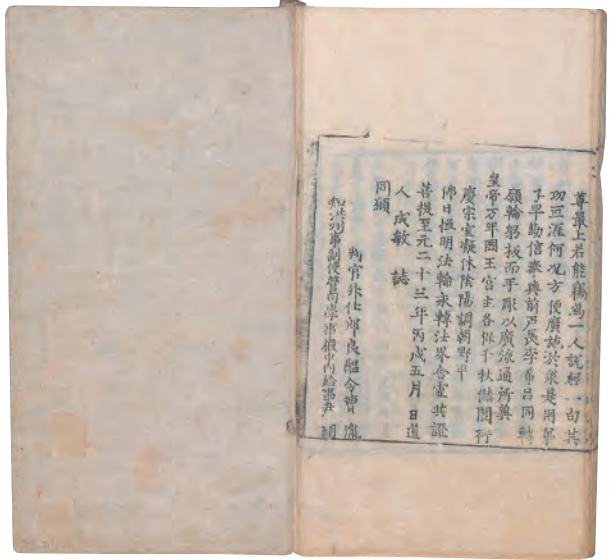 尊最上若能竊爲一人說經一句其
功豆涯何况方便廣施於衆是用第
子早勤信 與前戶長李希呂同
願輪躬板而手彫以廣流通所冀
皇帝万年國王宮主各保千秋儲闈衍
慶宗室凝休陰陽調朝野平
佛日恒明法輪永轉法界含靈共證
菩提至元二十三年丙戌五月 日道
人 成敏 誌
同願
判官 仕郎良醞令曹胤
知洪州事副使管句學事 中內給事